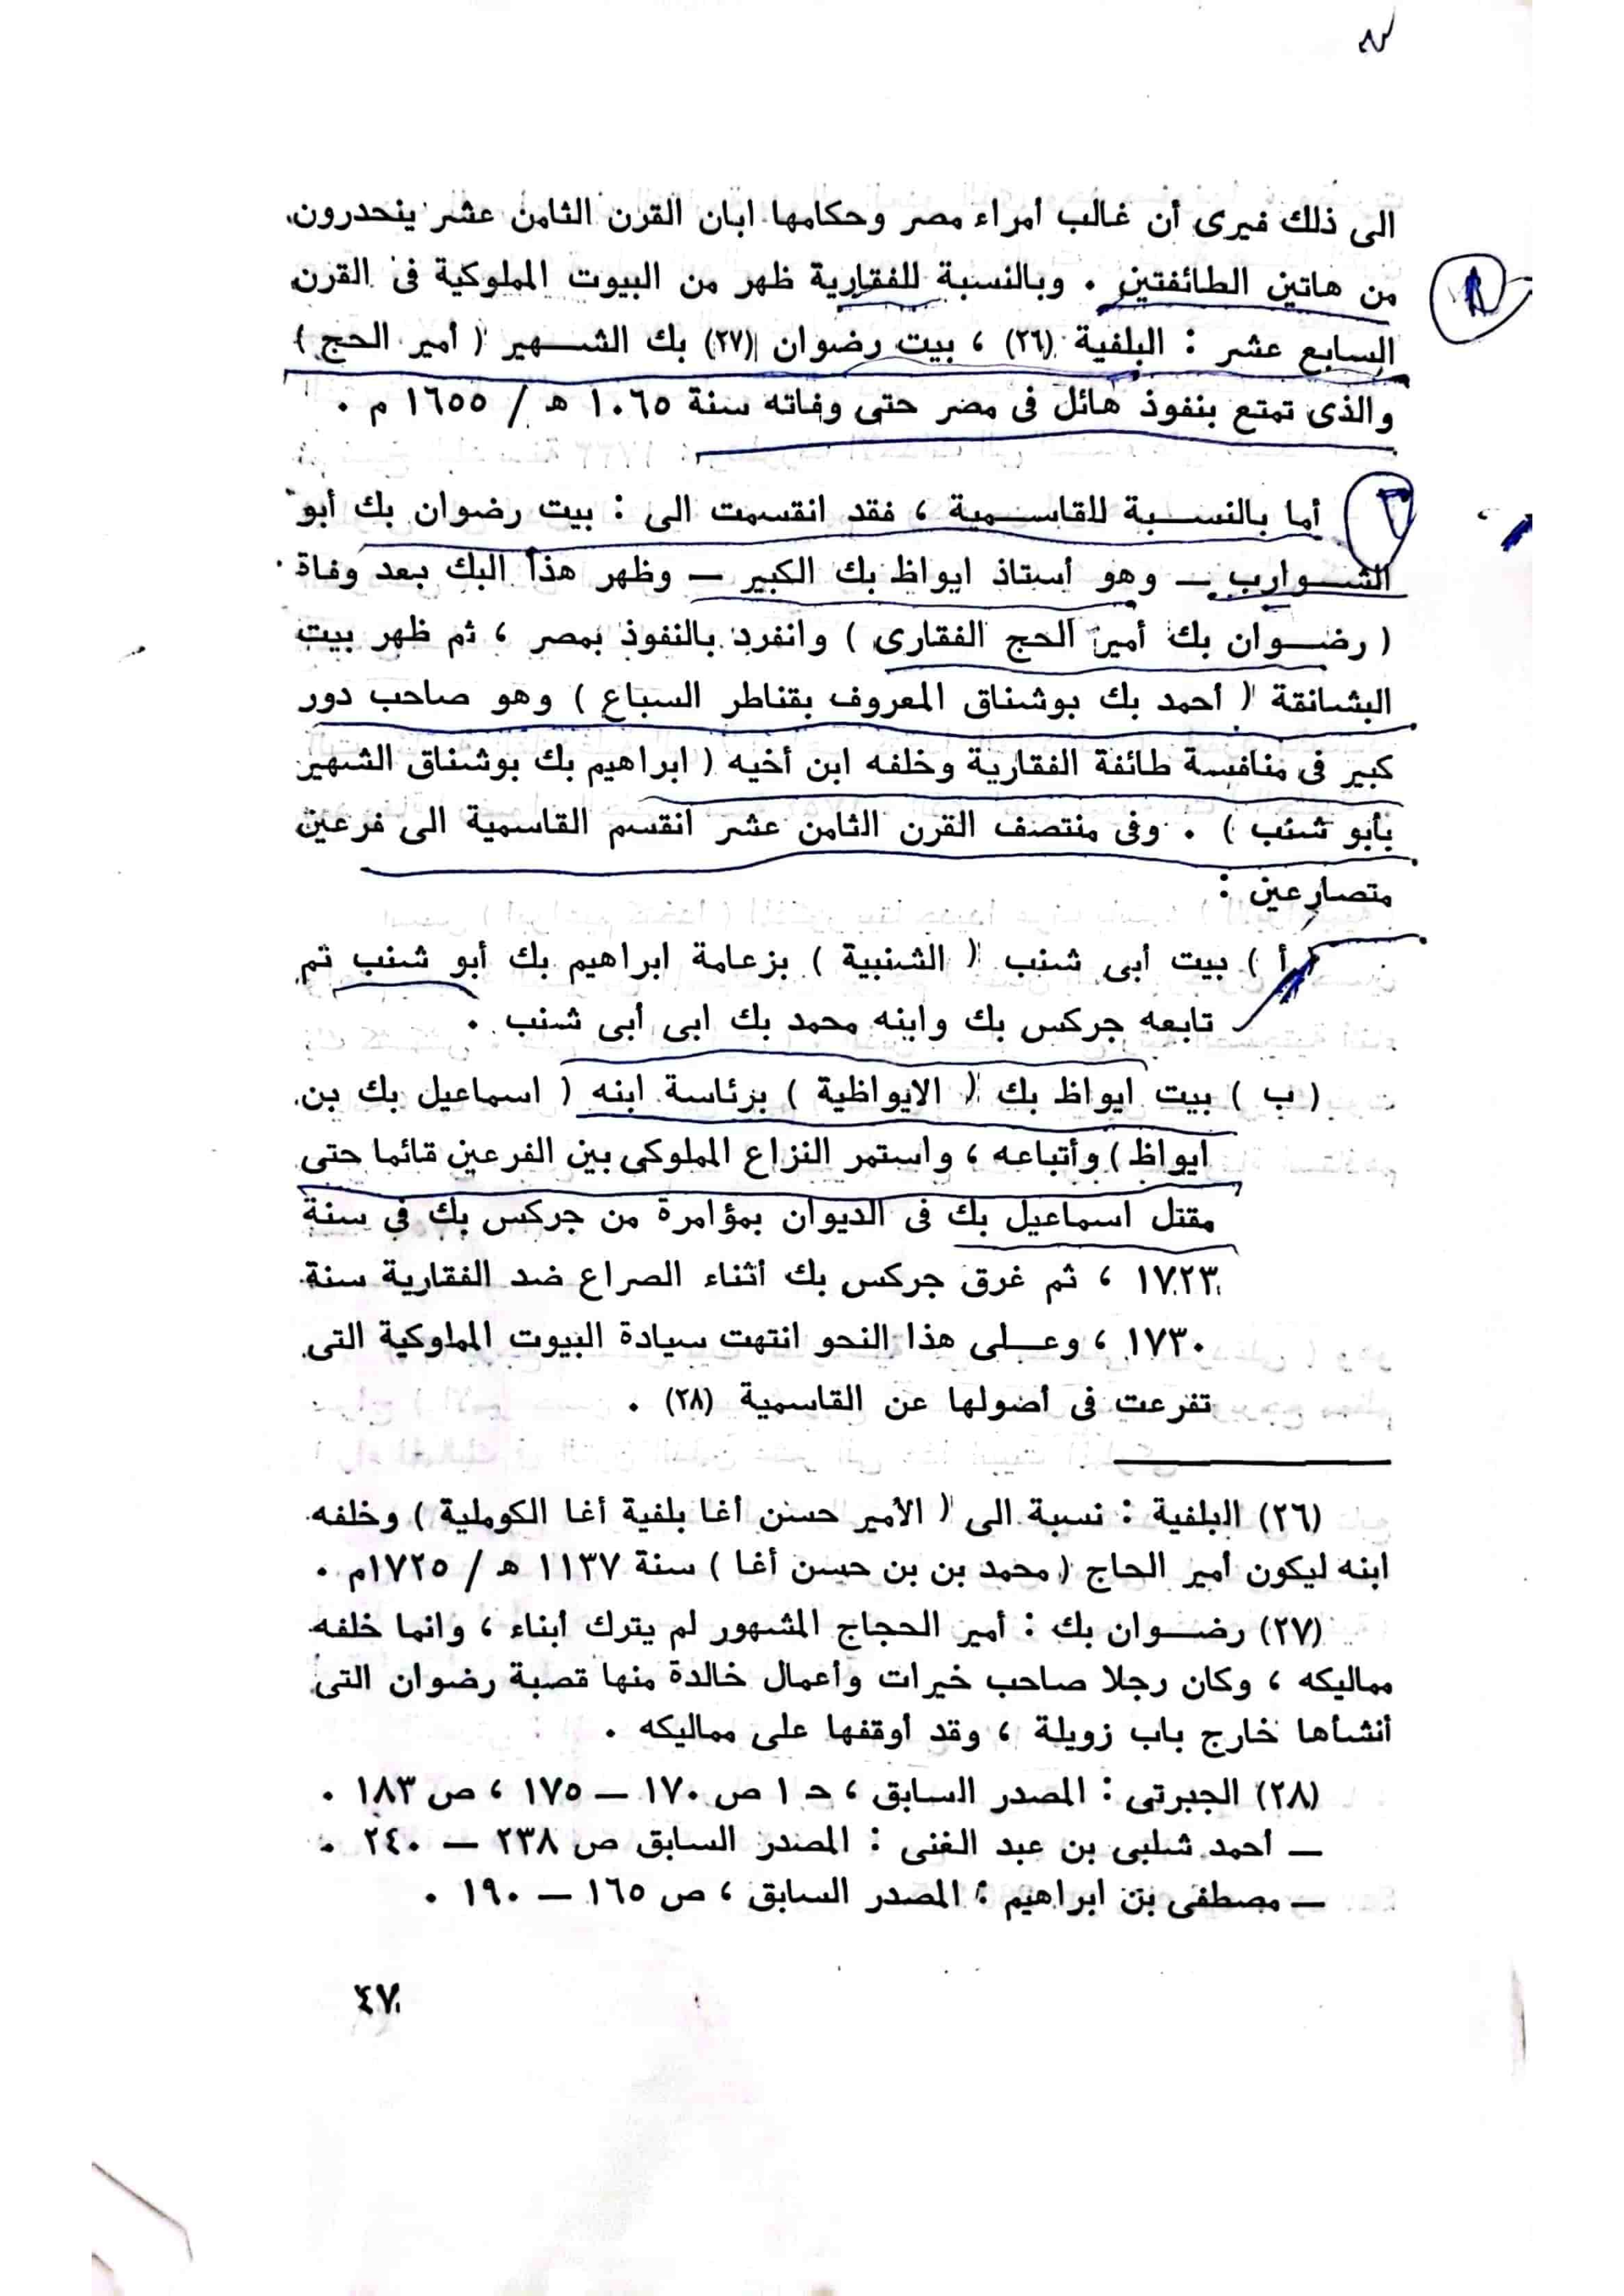 الى ذلك فيرى أن غالب أمراء مصر وحكامها ابان القرن الثامن عشر ينحدرون
من هاتين الطائفتين . وبالنسبة للفقارية ظهر من البيوت المملوكية فى القرن
السابع عشر : البلفية (٢٦) ، بيت رضوان (٢٧) بك الشهير ( أمير الحج )
والذى تمتع بنفوذ هائل فى مصر حتى وفاته سنة ١٠٦٥ هـ / ١٦٥٥ م .
أما بالنسبة للقاسمية ، فقد انقسمت الى : بيت رضوان بك أبو
الشوارب — وهو أستاذ ايواظ بك الكبير — وظهر هذا البك بعد وفاة
( رضوان بك أمير الحج الفقارى ) وانفرد بالنفوذ بمصر ، ثم ظهر بيت
البشانقة ( أحمد بك بوشناق المعروف بقناطر السباع ) وهو صاحب دور
كبير فى منافسة طائفة الفقارية وخلفه ابن أخيه ( ابراهيم بك بوشناق الشهير
بأبو شنب ) . وفى منتصف القرن الثامن عشر انقسم القاسمية الى فرعين
متصارعين :
( أ ) بيت أبى شنب ( الشنبية ) بزعامة ابراهيم بك أبو شنب ثم
تابعه جركس بك وابنه محمد بك ابى أبى شنب .
( ب ) بيت ايواظ بك ( الايواظية ) برئاسة ابنه ( اسماعيل بك بن
ايواظ ) وأتباعه ، واستمر النزاع المملوكى بين الفرعين قائما حتى
مقتل اسماعيل بك فى الديوان بمؤامرة من جركس بك فى سنة
١٧٢٣ ، ثم غرق جركس بك أثناء الصراع ضد الفقارية سنة
١٧٣٠ ، وعلى هذا النحو انتهت سيادة البيوت المملوكية التى
تفرعت فى أصولها عن القاسمية (٢٨) .
(٢٦) البلفية : نسبة الى ( الأمير حسن أغا بلفية أغا الكوملية ) وخلفه
ابنه ليكون أمير الحاج ( محمد بن بن حسن أغا ) سنة ١١٣٧ هـ / ١٧٢٥م .
(٢٧) رضوان بك : أمير الحجاج المشهور لم يترك أبناء ، وانما خلفه
مماليكه ، وكان رجلا صاحب خيرات وأعمال خالدة منها قصبة رضوان التى
أنشأها خارج باب زويلة ، وقد أوقفها على مماليكه .
(٢٨) الجبرتى : المصدر السابق ، حـ ١ ص ١٧٠ — ١٧٥ ، ص ١٨٣ .
— أحمد شلبى بن عبد الغنى : المصدر السابق ص ٢٣٨ — ٢٤٠ .
— مصطفى بن ابراهيم : المصدر السابق ، ص ١٦٥ — ١٩٠ .
٤٧